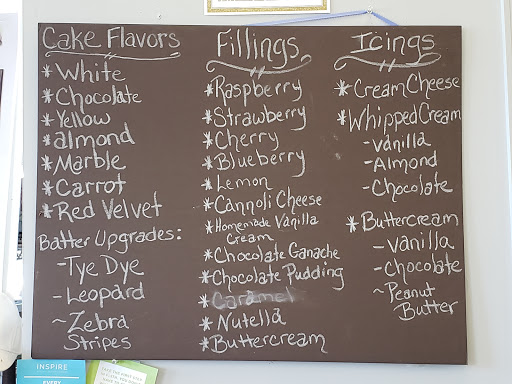 Cake Flavors
*White
*Chocolate
*Yellow
*almond
*Marble
*Carrot
*Red Velvet
Batter Upgrades:
-Tye Dye
-Leopard
~Zebra
Stripes
Fillings
*Raspberry
*Strawberry
*Cherry
*Blueberry
*Lemon
*Cannoli Cheese
*Homemade Vanilla
Cream
*Chocolate Ganache
*Chocolate Pudding
*Caramel
*Nutella
*Buttercream
Icings
*Cream Cheese
*Whipped Cream
-vanilla
-Almond
-Chocolate
*Buttercream
-vanilla
-chocolate
~Peanut
Butter
INSPIRE
EVERY